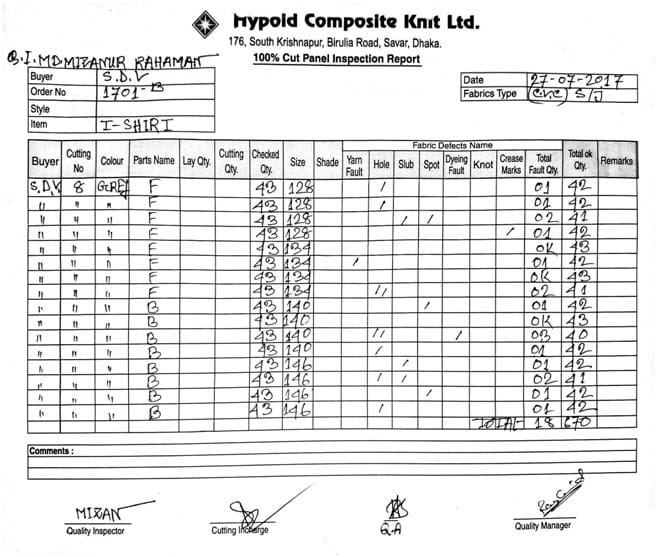 Hypoid Composite Knit Ltd.
176, South Krishnapur, Birulia Road, Savar, Dhaka.
100% Cut Panel Inspection Report
Q.I. MD MIZANUR RAHAMAN
Buyer S.D.V
Order No 1701-B
Style
Item T-SHIRT
Date 27-07-2017
Fabrics Type (C.V.C) S/J
Fabric Defects Name
Buyer Cutting No Colour Parts Name Lay Qty. Cutting Qty. Checked Qty. Size Shade Yarn Fault Hole Slub Spot Dyeing Fault Knot Crease Marks Total Fault Qty. Total ok Qty. Remarks
S.D.V 8 GREY F 43 128 / 01 42
" " " F 43 128 / 01 42
" " " F 43 128 / / 02 41
" " " F 43 128 / 01 42
" " " F 43 134 OK 43
" " " F 43 134 / 01 42
" " " F 43 134 OK 43
" " " F 43 134 // 02 41
" " " B 43 140 / 01 42
" " " B 43 140 OK 43
" " " B 43 140 // / 03 40
" " " B 43 140 / 01 42
" " " B 43 146 / 01 42
" " " B 43 146 / / 02 41
" " " B 43 146 / 01 42
" " " B 43 146 / 01 42
TOTAL- 18 670
Comments :
MIZAN
Quality Inspector
Cutting Incharge
Q.A
Quality Manager